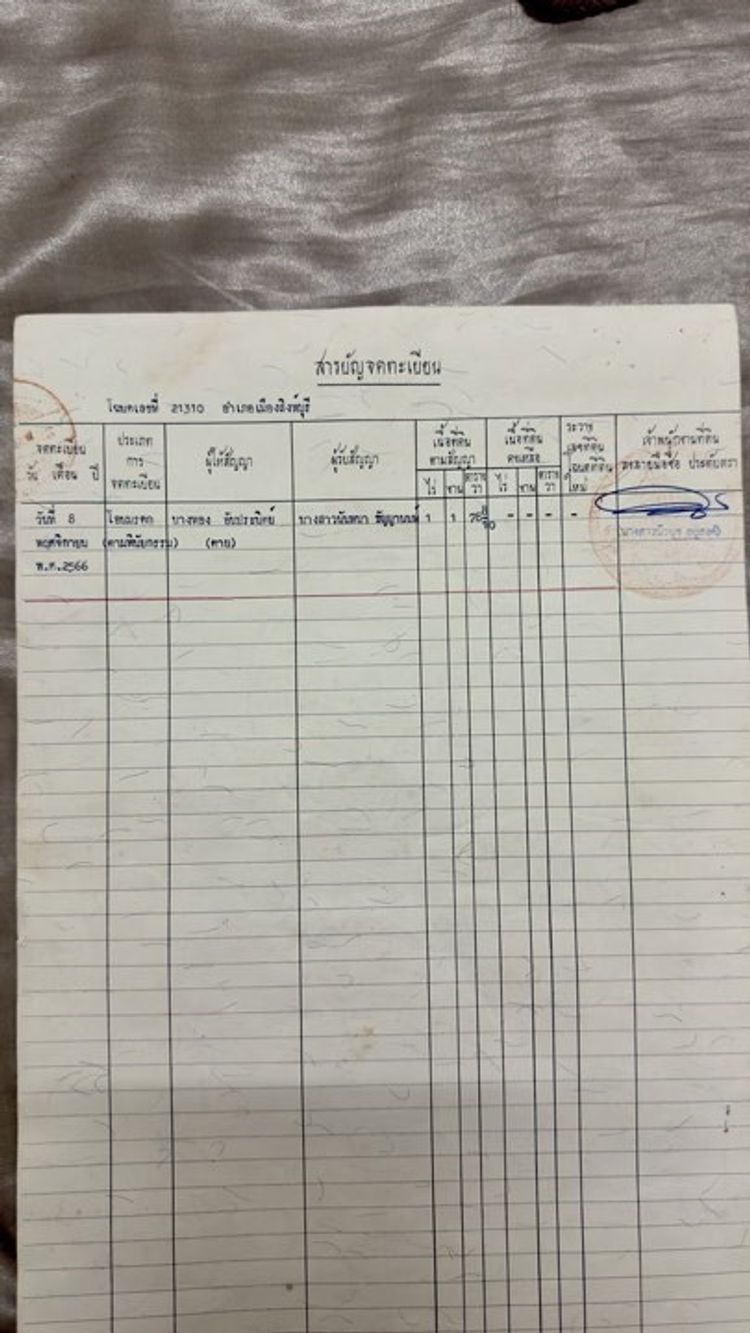 สารบัญจดทะเบียน
โฉนดเลขที่ 21310 อำเภอเมืองสิงห์บุรี
จดทะเบียน วัน เดือน ปี
ประเภท การ จดทะเบียน
ผู้ให้สัญญา
ผู้รับสัญญา
เนื้อที่ดิน ตามสัญญา
เนื้อที่ดิน คงเหลือ
ระวาง เลขที่ดิน โฉนดที่ดิน ใหม่
เจ้าพนักงานที่ดิน ลงลายมือชื่อ ประทับตรา
ไร่ งาน ตาราง วา ไร่ งาน ตาราง วา
วันที่ 8 โอนมรดก นางทอง นางสาวนันทนา 1 1 - - - -
พฤศจิกายน (ตามพินัยกรรม) (ตาย)
พ.ศ.2566